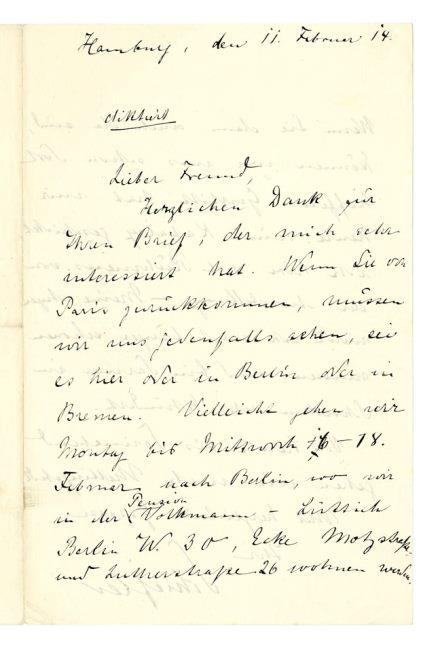 Hamburg, den 11. Februar 14.
diktiert
Lieber Freund,
Herzlichen Dank für
Ihren Brief, der mich sehr
interessiert hat. Wenn Sie von
Paris zurückkommen, müssen
wir uns jedenfalls sehen, sei
es hier oder in Berlin oder in
Bremen. Vielleicht gehen wir
Montag bis Mittwoch 16–18.
Februar nach Berlin, wo wir
in der Pension Volkmann-Lüttich
Berlin W. 30, Ecke Motzstraße
und Lutherstraße 26 wohnen werden.